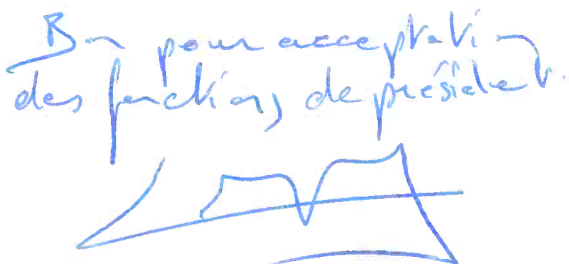 Bon pour acceptation
des fonctions de président.